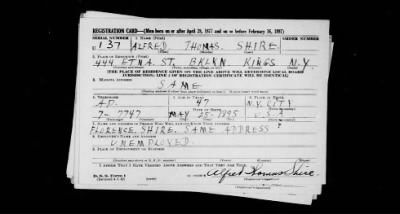 REGISTRATION CARD—(Men born on or after April 28, 1877 and on or before February 16, 1897)
SERIAL NUMBER 1. NAME (Print) ORDER NUMBER
U 137 ALFRED THOMAS SHIRE
2. PLACE OF RESIDENCE (Print)
444 ETNA ST. BKLYN. KINGS N.Y.
[THE PLACE OF RESIDENCE GIVEN ON THE LINE ABOVE WILL DETERMINE LOCAL BOARD
JURISDICTION; LINE 2 OF REGISTRATION CERTIFICATE WILL BE IDENTICAL]
3. MAILING ADDRESS
SAME
4. TELEPHONE 5. AGE IN YEARS 6. PLACE OF BIRTH
AP. 47 N.Y. CITY
7-7747 MAY 25 1895
7. NAME AND ADDRESS OF PERSON WHO WILL ALWAYS KNOW YOUR ADDRESS
FLORENCE SHIRE, SAME ADDRESS
8. EMPLOYER'S NAME AND ADDRESS
UNEMPLOYED.
9. PLACE OF EMPLOYMENT OR BUSINESS
I AFFIRM THAT I HAVE VERIFIED ABOVE ANSWERS AND THAT THEY ARE TRUE.
D. S. S. Form 1
Alfred Thomas Shire